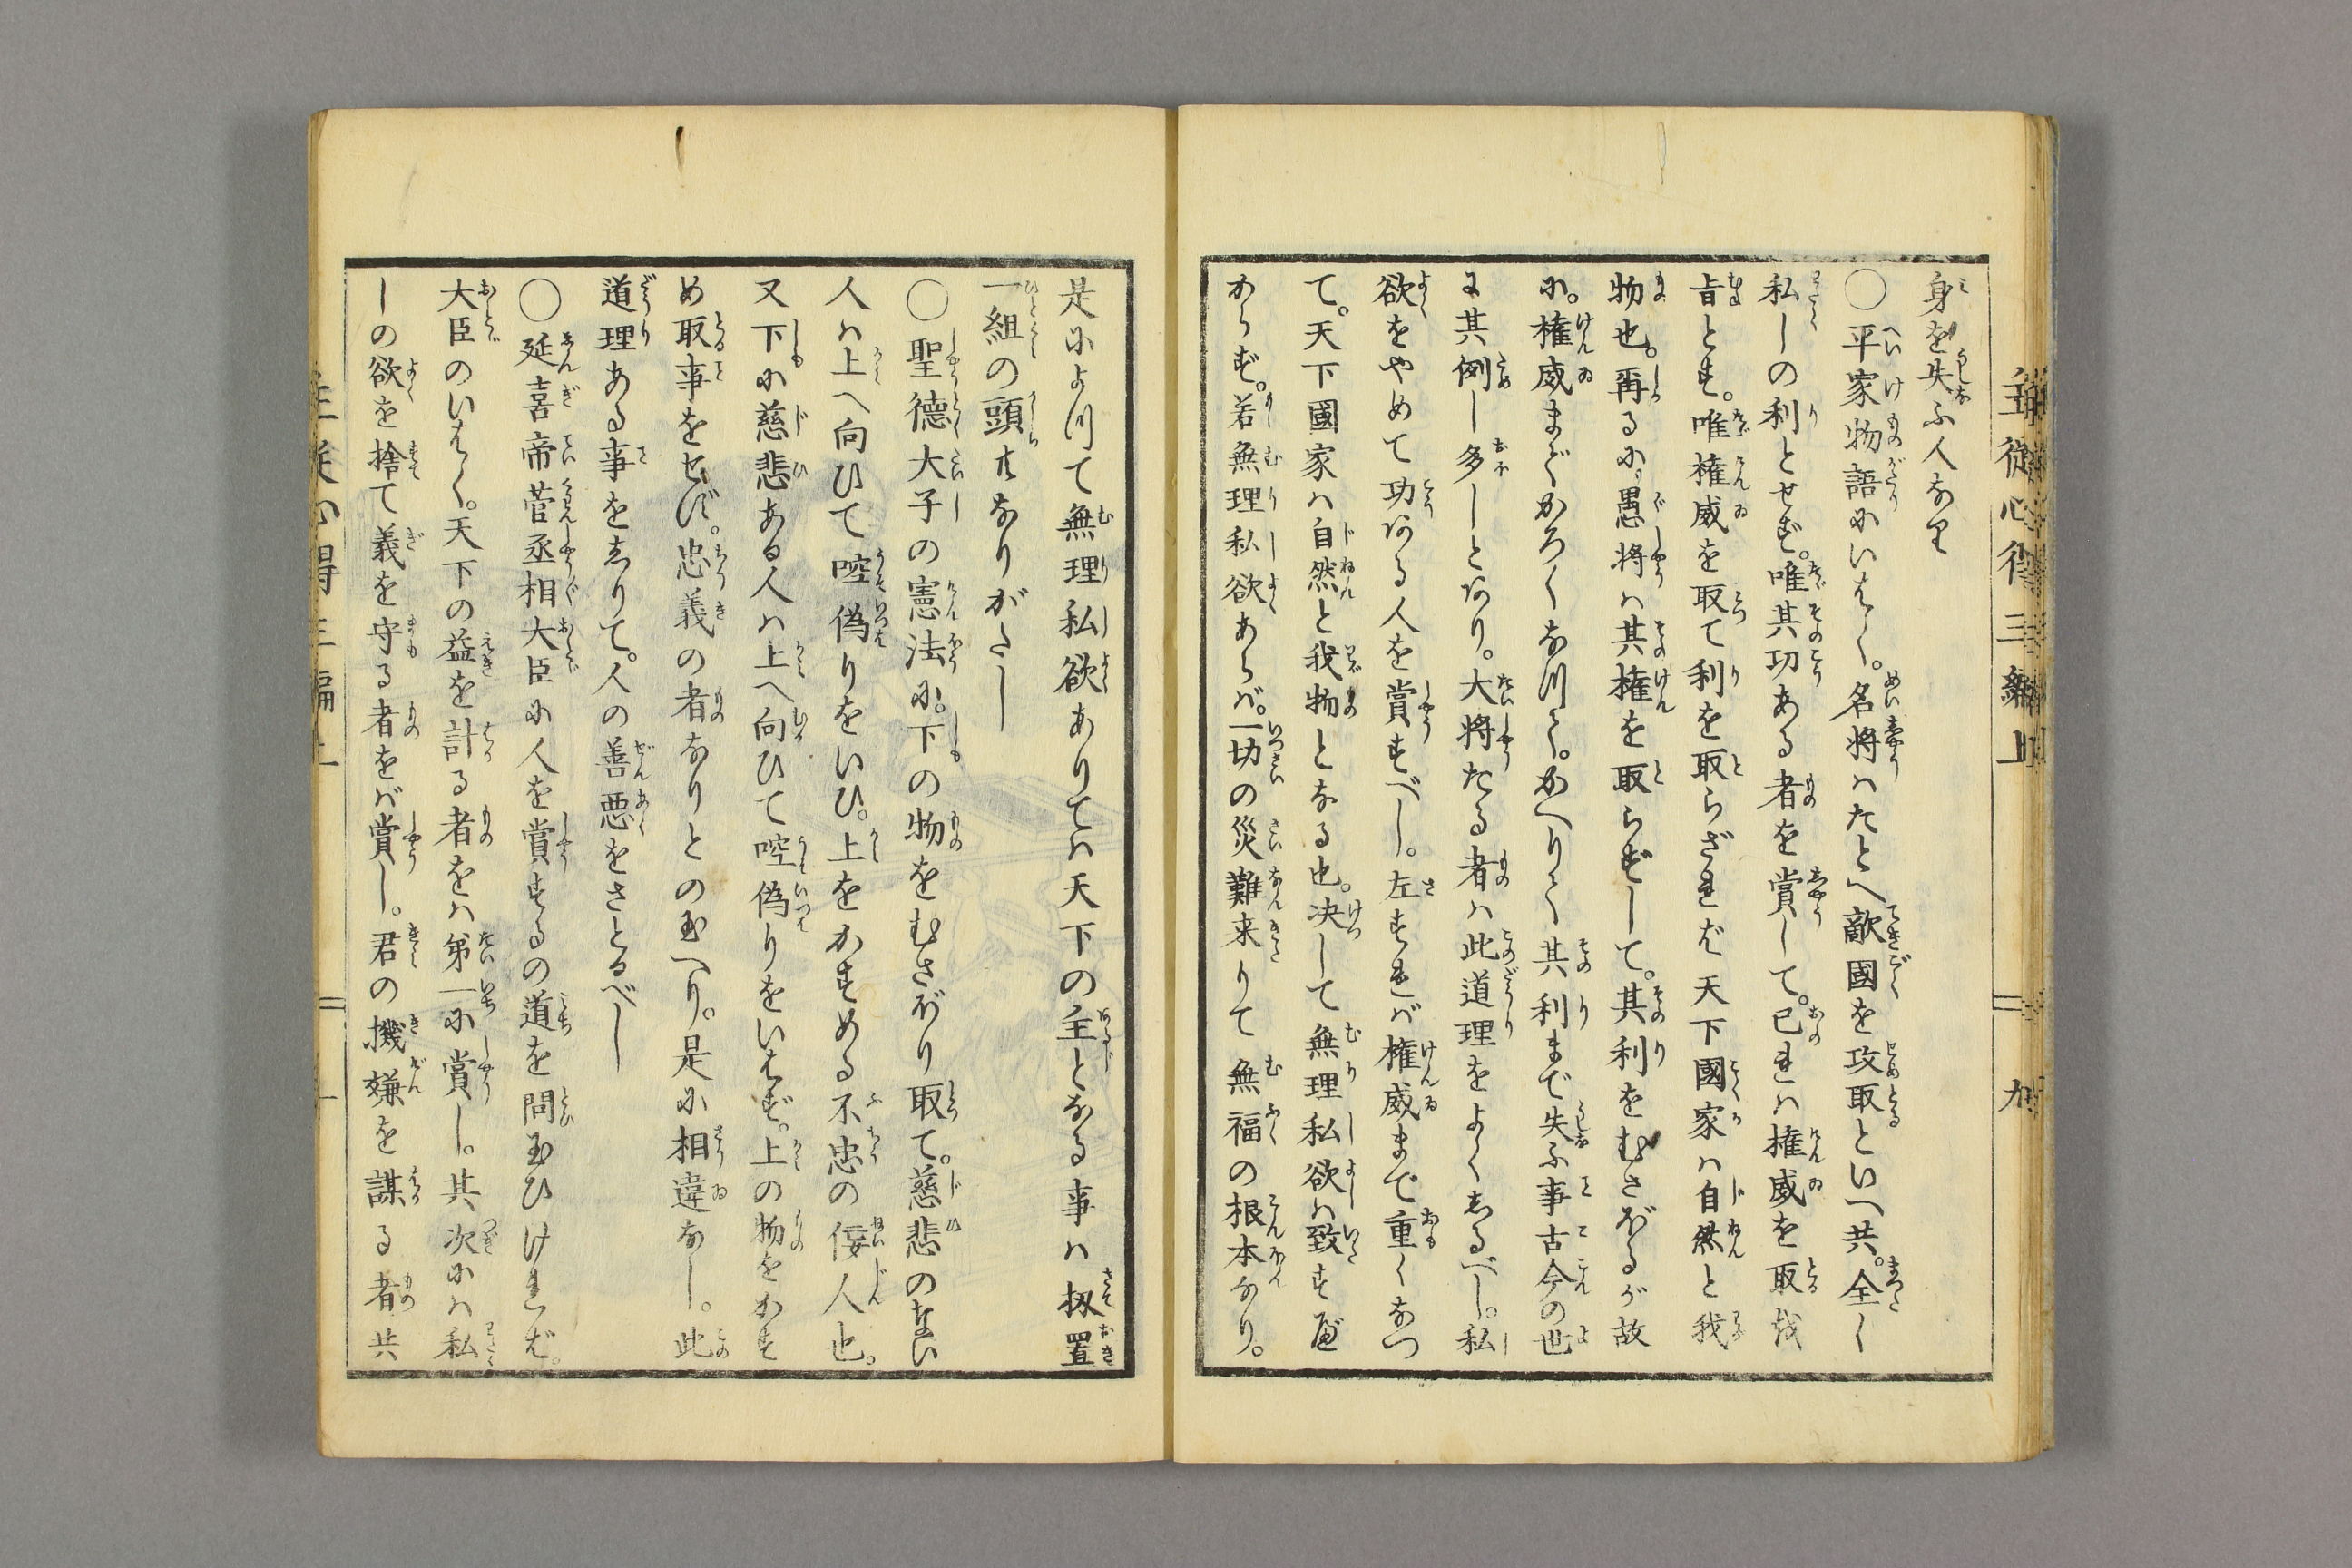 主従心得三編上
九
身を失ふ人なり
〇平家物語にいはく。名将はたとへ敵國を攻取といへ共。全く
私しの利とせず。唯其功ある者を賞して。己れは権威を取を
旨とす。唯権威を取て利を取らざれば天下國家は自然と我
物也。爾るに愚将は其権を取らずして。其利をむさぼるが故
に。権威までかろくなつて。かへりて其利まで失ふ事古今の世
に其例し多しとかり。大将たる者は此道理をよくしるべし。私
欲をやめて功ある人を賞すべし。左すれば権威まで重くなつ
て。天下國家は自然と我物となる也。决して無理私欲は致すべ
からず。若無理私欲あらば。一切の災難来りて無福の根本なり。
是によつて無理私欲ありては天下の主となる事は扨置
一組の頭もなりがたし
〇聖徳大子の憲法に。下の物をむさぼり取て。慈悲のない
人は上へ向ひて啌偽りをいひ。上をかすめる不忠の佞人也。
又下に慈悲ある人は上へ向ひて啌偽りをいはず。上の物をかす
め取事をせず。忠義の者なりとの玉へり。是に相違なし。此
道理ある事をしりて。人の善悪をさとるべし
〇延喜帝菅丞相大臣に人を賞するの道を問玉ひければ。
大臣のいはく。天下の益を計る者をは第一に賞し。其次には私
しの欲を捨て義を守る者をば賞し。君の機嫌を謀る者共
主従心得三編上